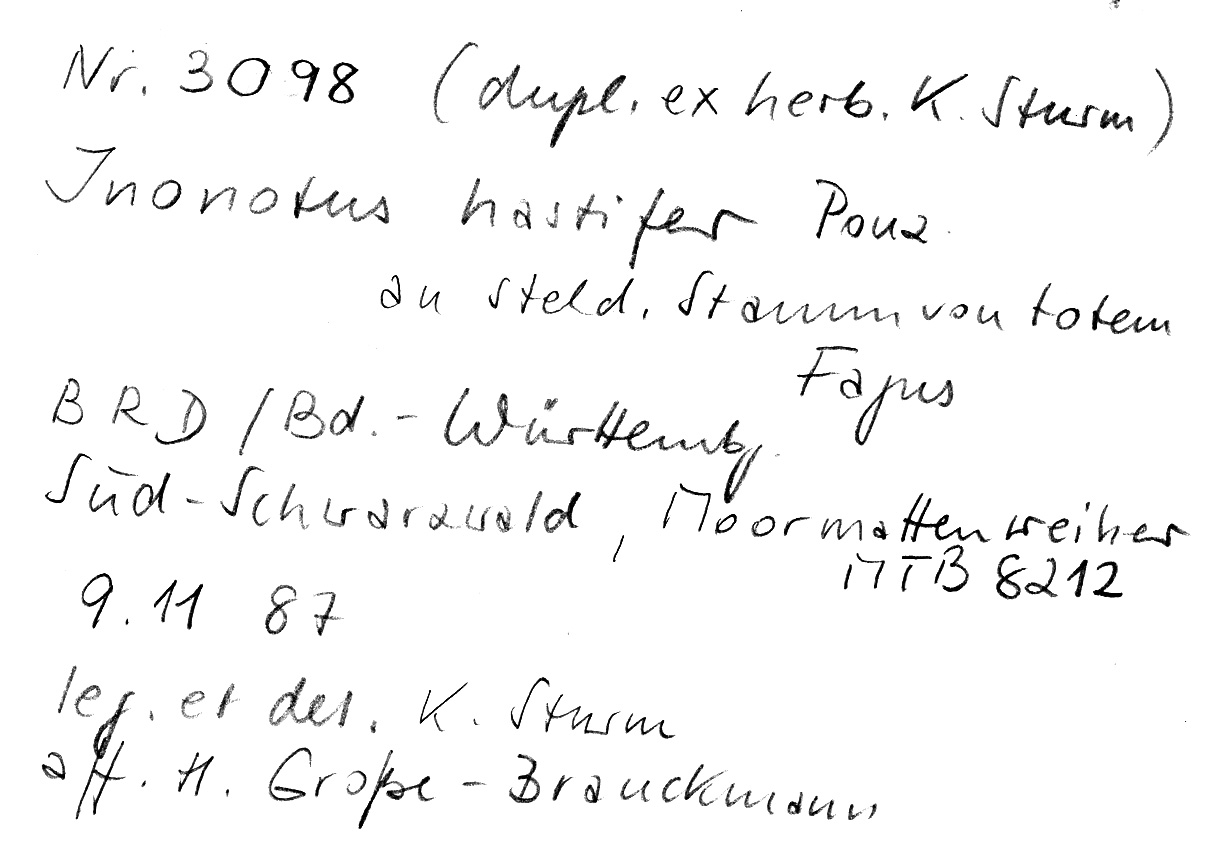 Nr. 3098 (dupl. ex herb. K. Sturm)
Inonotus hastifer Pouz.
an stehd. Stamm von totem
Fagus
BRD / Bd.-Württembg.
Süd-Schwarzwald, Moormattenweiher
MTB 8212
9.11 87
leg. et det. K. Sturm
aff. H. Große-Brauckmann